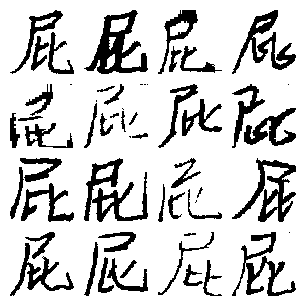 屁屁屁屁
屁屁屁屁
屁屁屁屁
屁屁屁屁